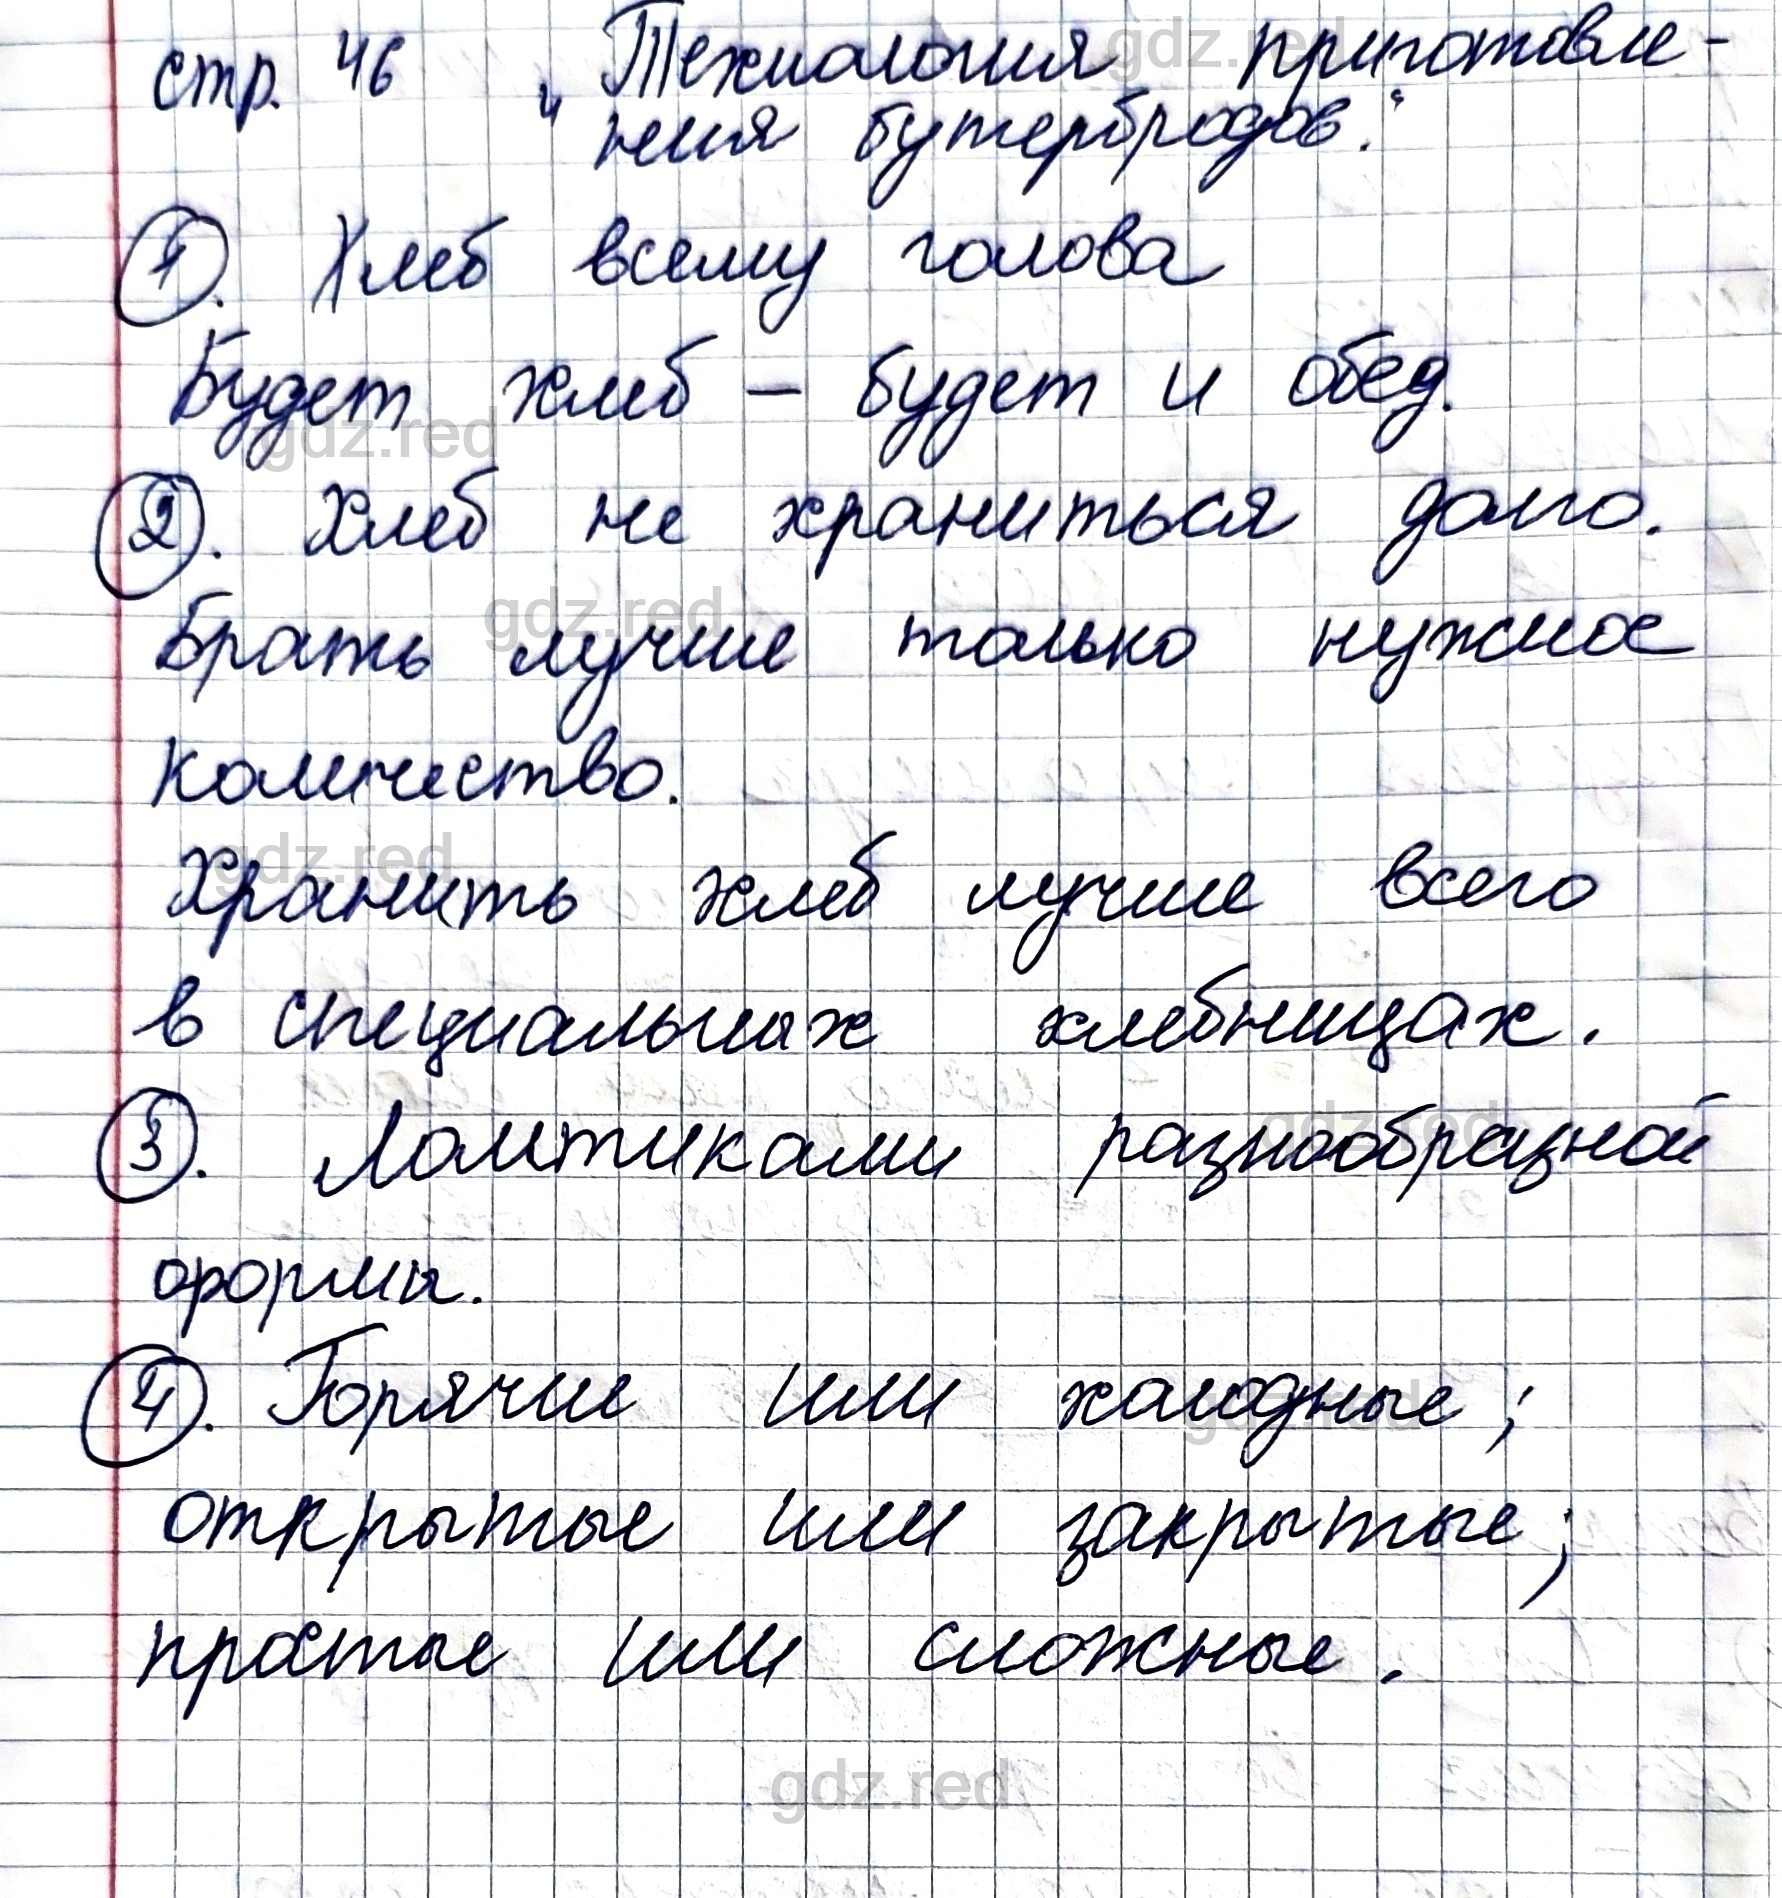 стр. 46 „Технология приготовле-
ния бутербродов."
1. Хлеб всему голова
Будет хлеб – будет и обед.
2. Хлеб не храниться долго.
Брать лучше только нужное
количество.
Хранить хлеб лучше всего
в специальных хлебницах.
3. Ломтиками разнообразной
формы.
4. Горячие или холодные;
открытые или закрытые;
простые или сложные.
gdz.red
gdz.red
gdz.red
gdz.red
gdz.red
gdz.red
gdz.red